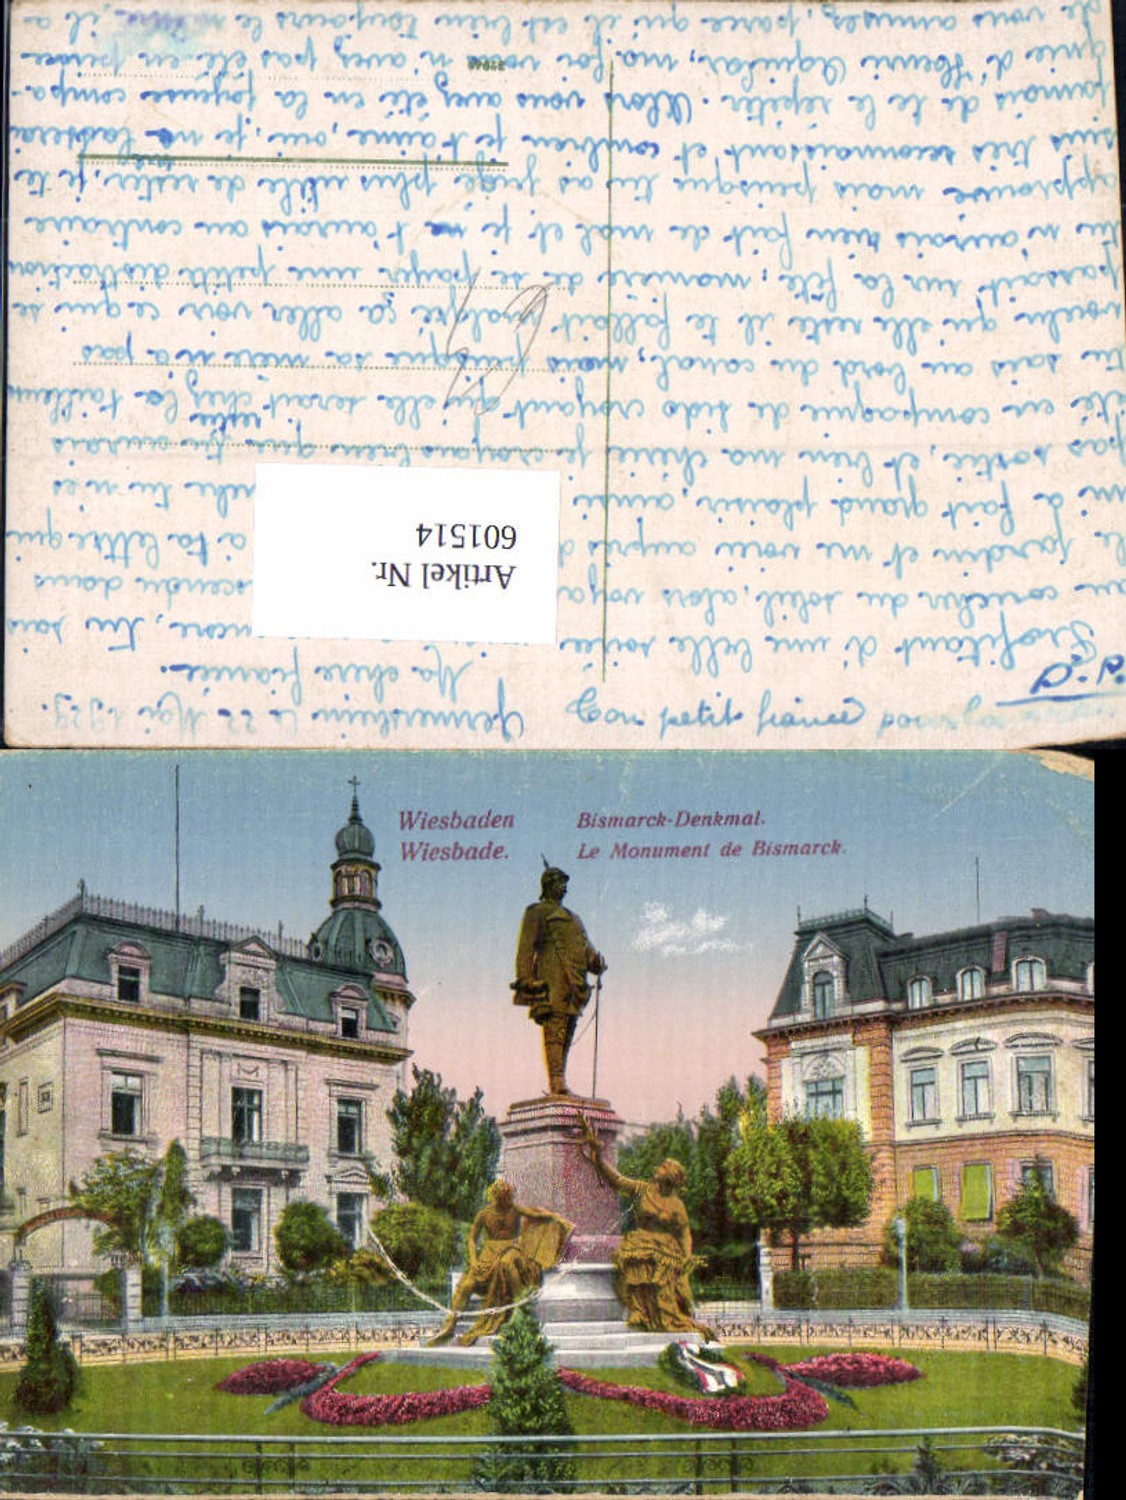 Germersheim le 22 Mai 1929.
Ma chère fiancée.
Profitant d'une belle soirée encore, j'en suis
au coucher du soleil, alors
le jardin et me voici auprès à ta lettre qui
m'a fait grand plaisir, ainsi tu n'es
pas sortie, et bien ma chérie je croyais bien que tu aurais
été en compagnie de Lido croyant qu'elle serait chez la tailleu
tu sais au bord du canal, mais puisque sa mère n'a pas
voulu qu'elle reste il te fallait malgré ça aller voir ce que se
passait sur la fête, manière de se payer une petite distraction
tu n'aurais rien fait de mal et je ne t'aurais au contraire
approuvé mais puisque tu as jugé plus utile de rester, je te
suis très reconnaissant et combien je t'aime, oui, je ne tasserai
jamais de te le répéter. Alors vous avez été en la joyeuse compa-
gnie d'Henri Aguilar, ma foi vous n'avez pas été en peine
de vous amusez, parce qu'il est bien toujours le même, il a
Ton petit fiancé
Artikel Nr.
601514
Wiesbaden Bismarck-Denkmal.
Wiesbade. Le Monument de Bismarck.